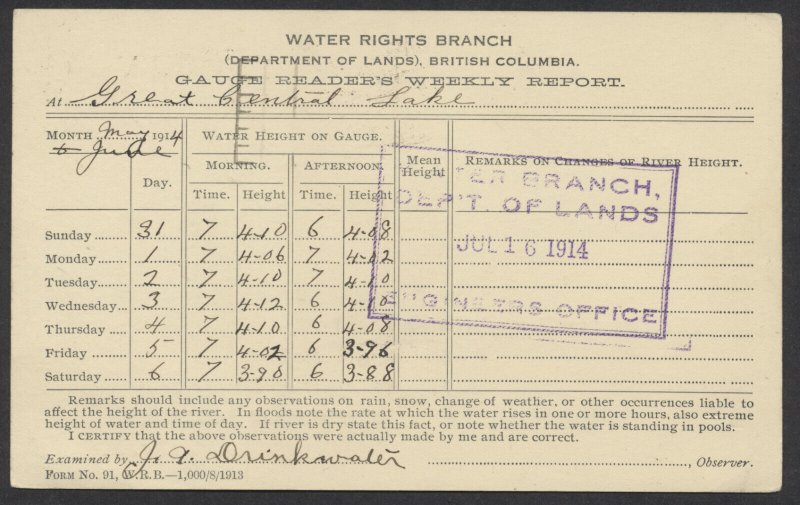 WATER RIGHTS BRANCH
(DEPARTMENT OF LANDS), BRITISH COLUMBIA.
GAUGE READER'S WEEKLY REPORT.
At Great Central Lake
MONTH May 1914
to June
WATER HEIGHT ON GAUGE.
Day.
MORNING. AFTERNOON.
Time. Height Time. Height
Mean Height
REMARKS ON CHANGES OF RIVER HEIGHT.
Sunday 31 7 4-10 6 4-08
Monday 1 7 4-06 7 4-02
Tuesday 2 7 4-10 7 4-10
Wednesday 3 7 4-12 6 4-10
Thursday 4 7 4-10 6 4-08
Friday 5 7 4-02 6 3-96
Saturday 6 7 3-90 6 3-88
TER BRANCH,
DEP'T. OF LANDS
JUL 16 1914
ENGINEERS OFFICE
Remarks should include any observations on rain, snow, change of weather, or other occurrences liable to
affect the height of the river. In floods note the rate at which the water rises in one or more hours, also extreme
height of water and time of day. If river is dry state this fact, or note whether the water is standing in pools.
I CERTIFY that the above observations were actually made by me and are correct.
Examined by J. Drinkwater, Observer.
FORM No. 91, W.R.B.—1,000/8/1913